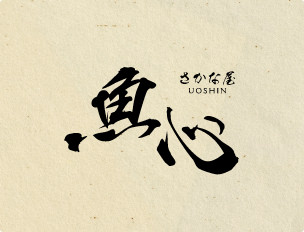 さかな屋
UOSHIN
魚心